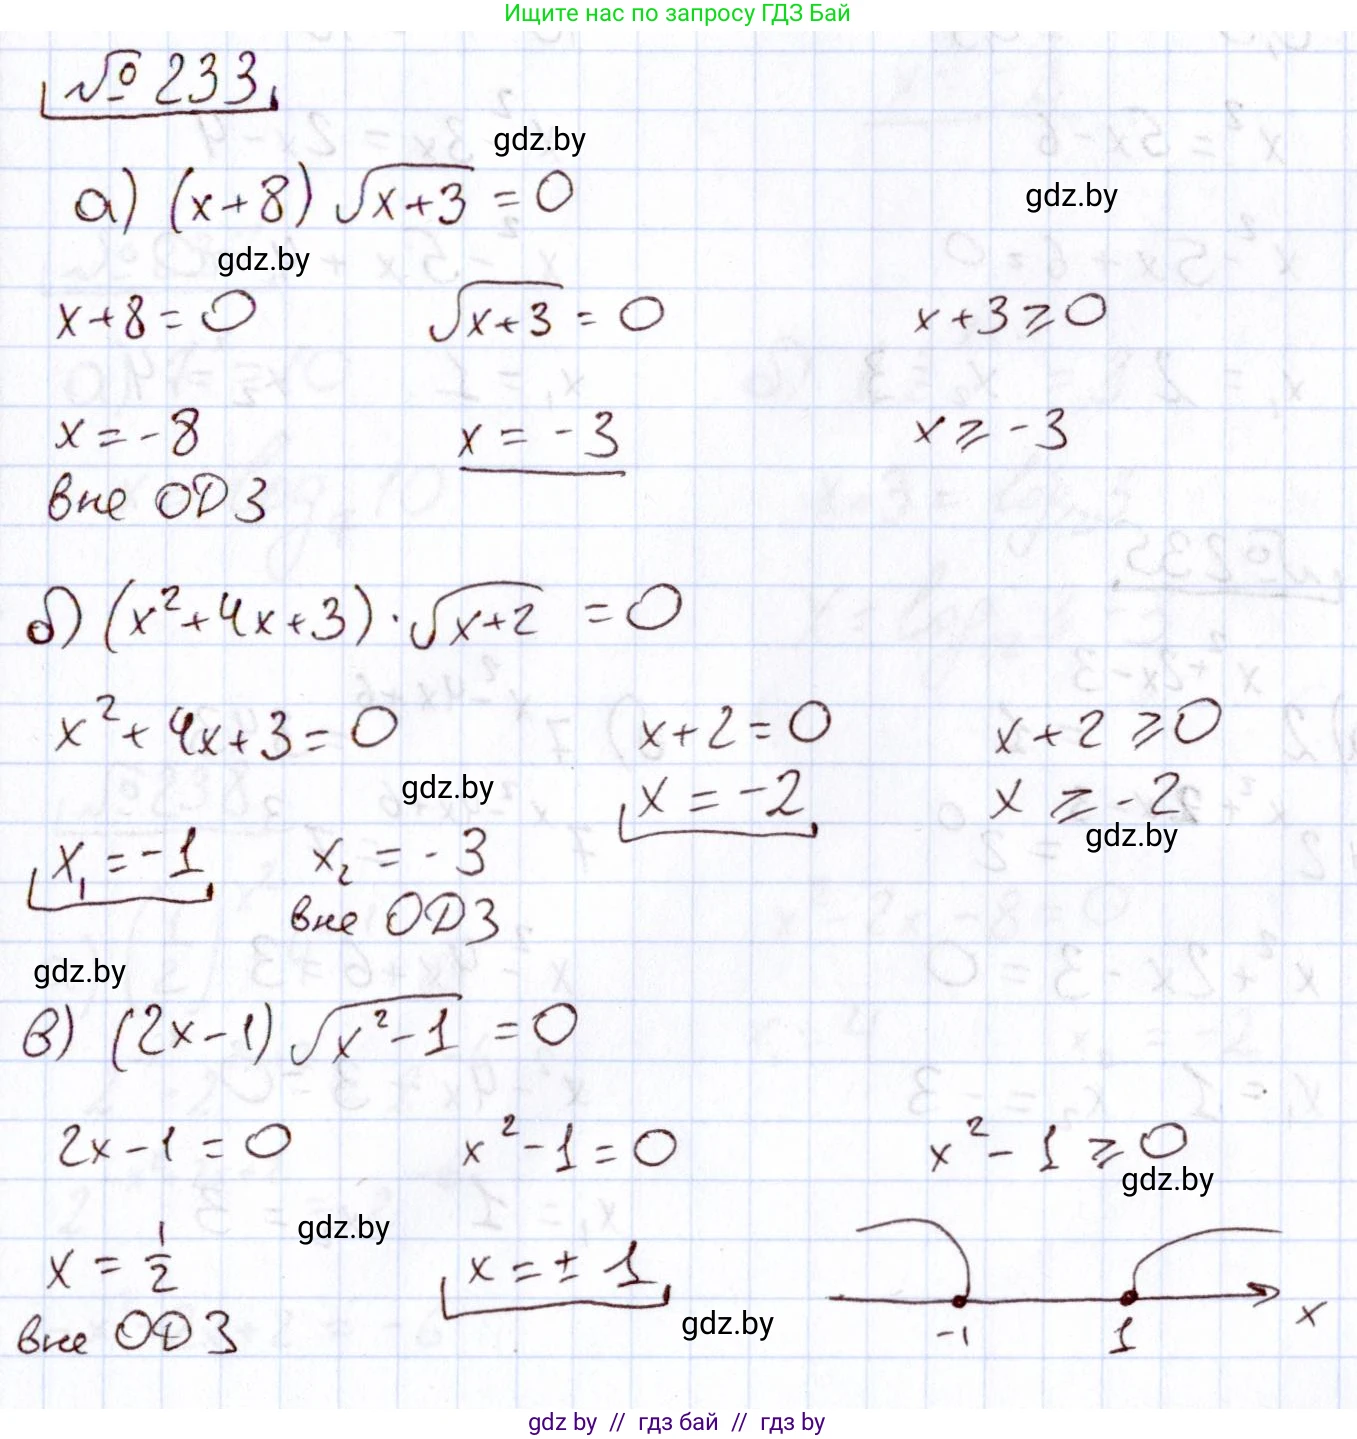 Ищите нас по запросу ГДЗ Бай
№ 233
gdz.by
а) (x+8) √(x+3) = 0
gdz.by
gdz.by
x+8=0 √(x+3) = 0 x+3⩾0
x=-8 x = -3 x⩾-3
вне ОДЗ
б) (x²+4x+3)·√(x+2) = 0
x²+4x+3=0 x+2=0 x+2⩾0
gdz.by
x=-2 x⩾-2
gdz.by
x₁=-1 x₂=-3
вне ОДЗ
gdz.by
в) (2x-1) √(x²-1) = 0
2x-1=0 x²-1=0 x²-1⩾0
gdz.by
gdz.by
x = 1/2 x=±1
-1 1 x
gdz.by
вне ОДЗ
gdz by // гдз бай // гдз by